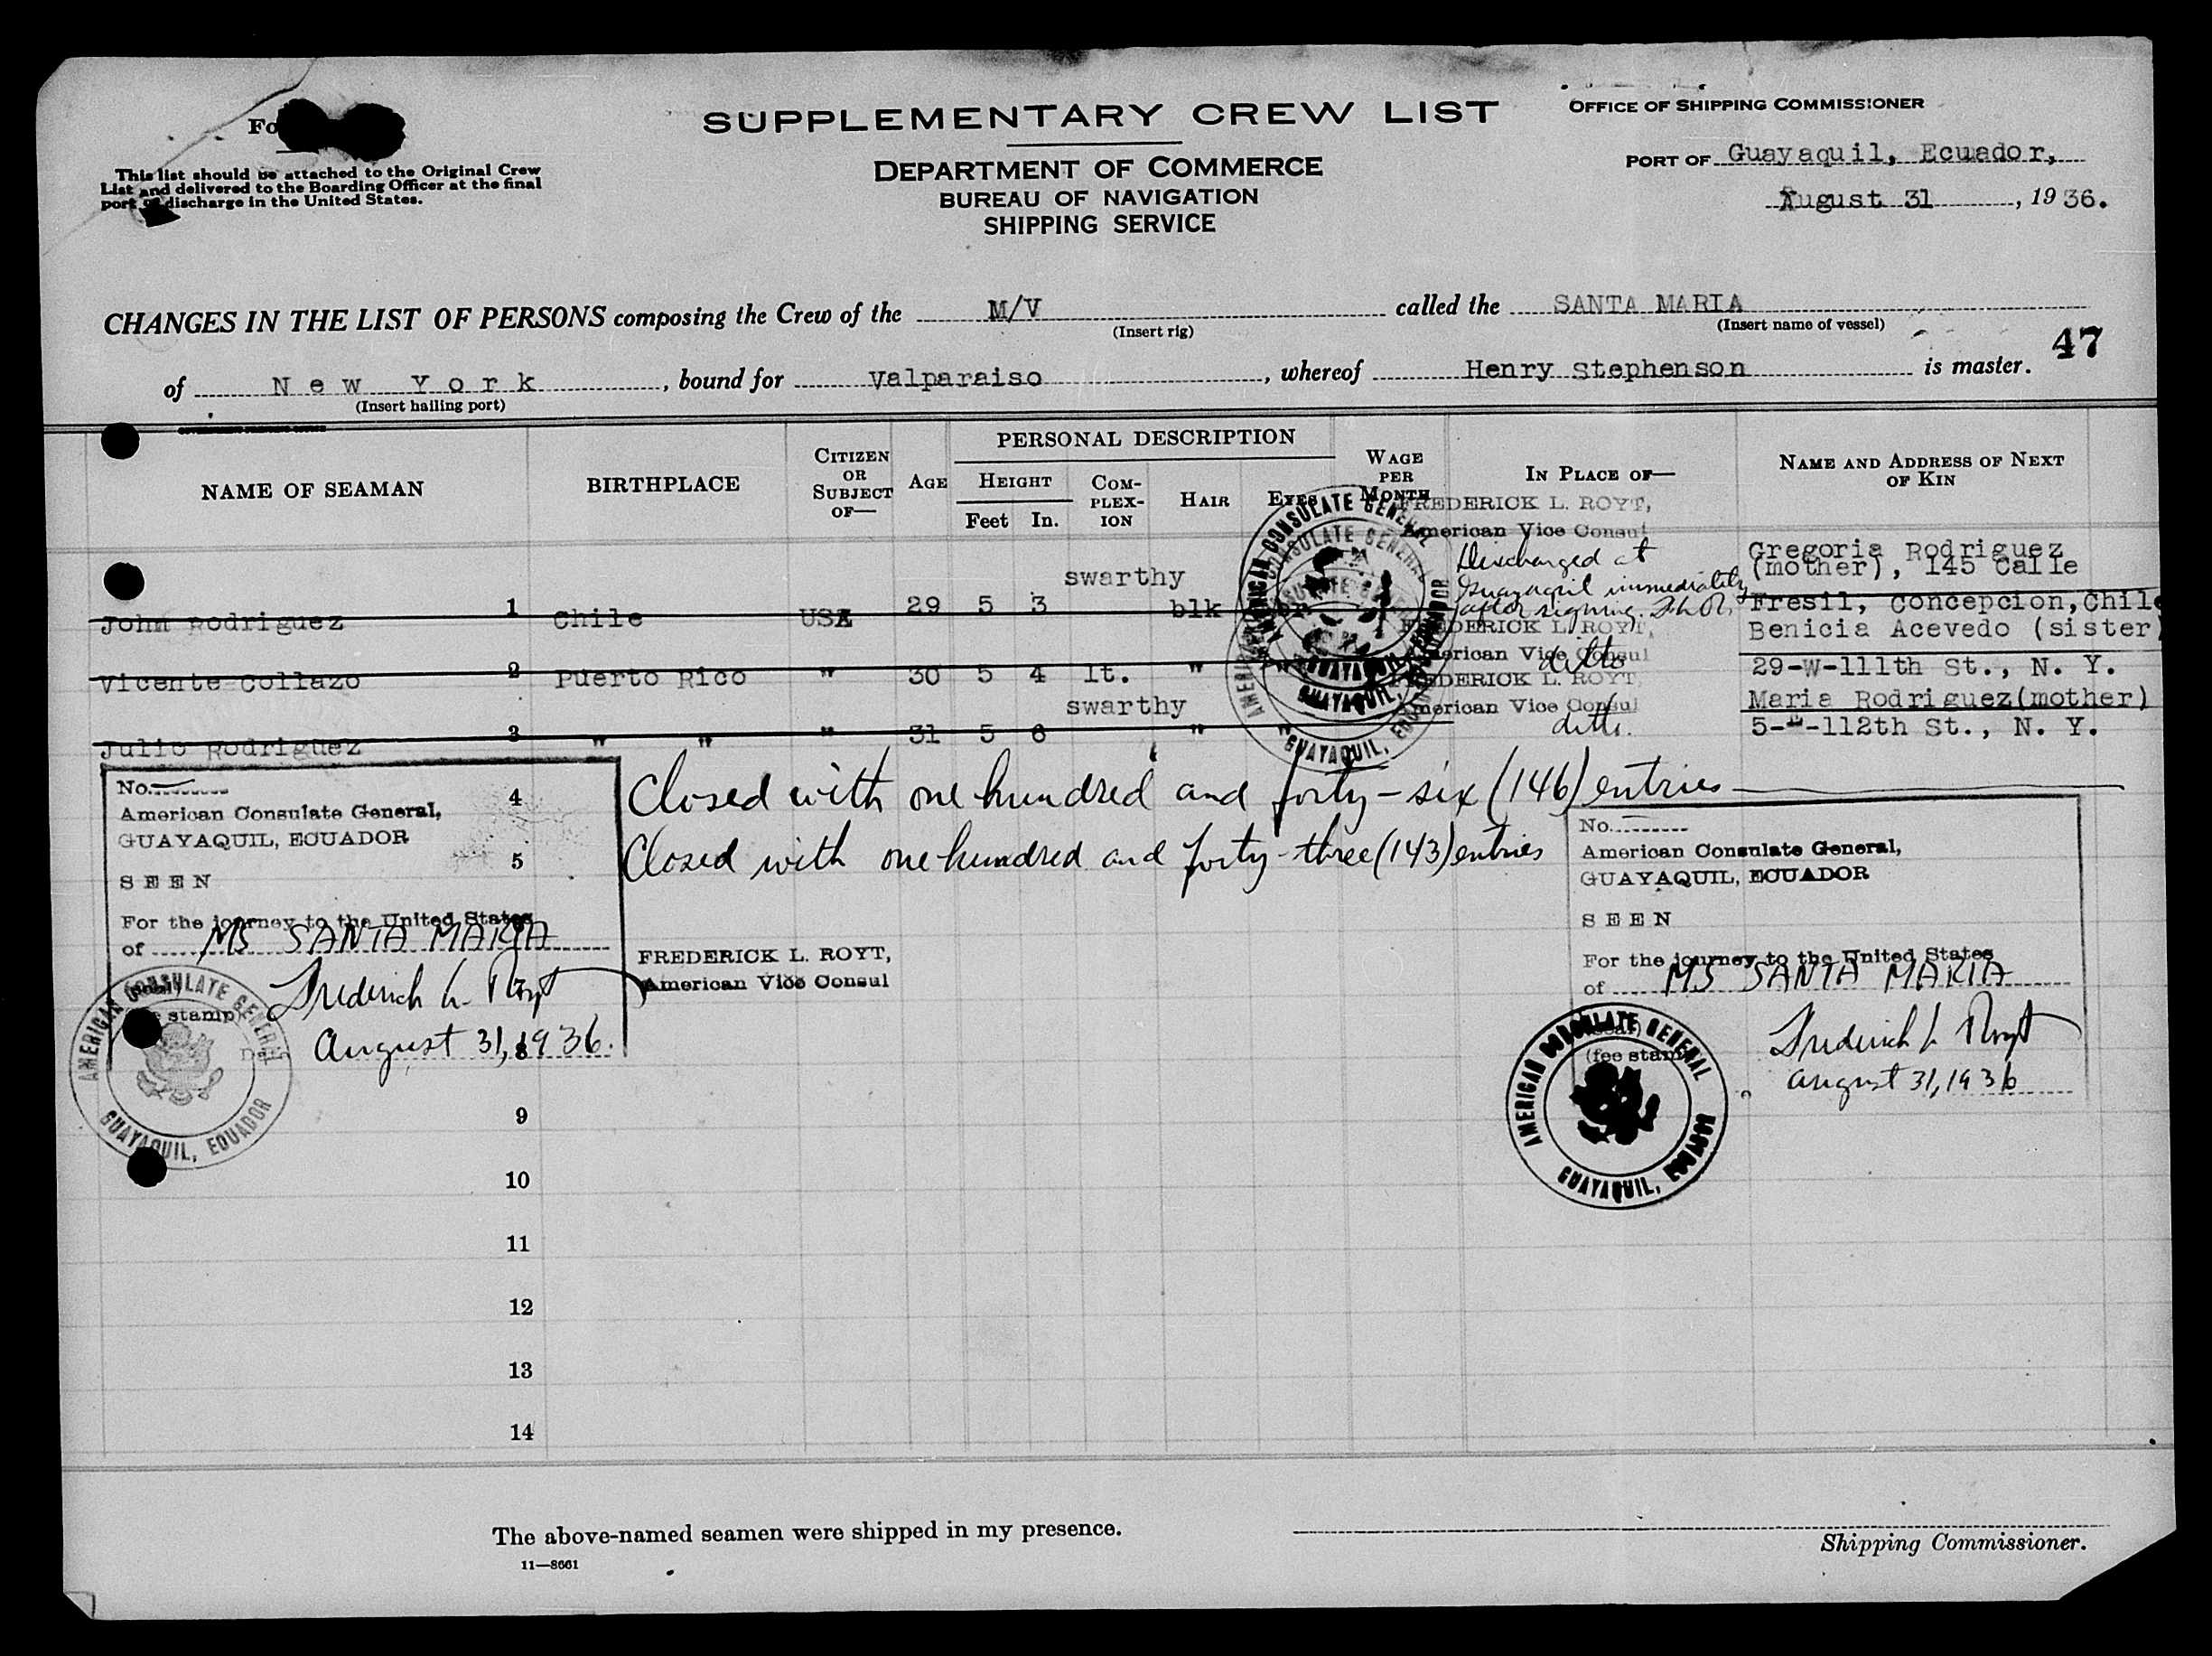 SUPPLEMENTARY CREW LIST
DEPARTMENT OF COMMERCE
BUREAU OF NAVIGATION
SHIPPING SERVICE
This list should be attached to the Original Crew
List and delivered to the Boarding Officer at the final
port of discharge in the United States.
OFFICE OF SHIPPING COMMISSIONER
PORT OF Guayaquil, Ecuador,
August 31, 1936.
CHANGES IN THE LIST OF PERSONS composing the Crew of the M/V called the SANTA MARIA
(Insert rig) (Insert name of vessel)
47
of New York, bound for Valparaiso, whereof Henry Stephenson is master.
(Insert hailing port)
NAME OF SEAMAN BIRTHPLACE CITIZEN OR SUBJECT OF— AGE PERSONAL DESCRIPTION HEIGHT Feet In. COMPLEXION HAIR EYES WAGE PER MONTH IN PLACE OF— NAME AND ADDRESS OF NEXT OF KIN
FREDERICK L. ROYT,
American Vice Consul
Discharged at
Guayaquil immediately
after signing. F.L.R.
Gregoria Rodriguez
(mother), 145 Calle
Fresil, Concepcion, Chile
John Rodriguez 1 Chile USA 29 5 3 swarthy blk br
FREDERICK L. ROYT,
American Vice Consul
ditto
Benicia Acevedo (sister)
29-W-111th St., N. Y.
Vicente Collazo 2 Puerto Rico " 30 5 4 lt. " "
FREDERICK L. ROYT
American Vice Consul
ditto.
Maria Rodriguez(mother)
5- -112th St., N. Y.
Julio Rodriguez 3 " " " 31 5 6 swarthy " "
4 Closed with one hundred and forty-six (146) entries
5 Closed with one hundred and forty-three (143) entries
No.
American Consulate General,
GUAYAQUIL, ECUADOR
SEEN
For the journey to the United States
of MS SANTA MARIA
(fee stamp)
Frederick L. Royt
Date August 31, 1936.
FREDERICK L. ROYT,
American Vice Consul
AMERICAN CONSULATE GENERAL
GUAYAQUIL, ECUADOR
No.
American Consulate General,
GUAYAQUIL, ECUADOR
SEEN
For the journey to the United States
of MS SANTA MARIA
(seal)
(fee stamp)
Frederick L. Royt
August 31, 1936
AMERICAN CONSULATE GENERAL
GUAYAQUIL, ECUADOR
AMERICAN CONSULATE GENERAL
GUAYAQUIL, ECUADOR
8
9
10
11
12
13
14
The above-named seamen were shipped in my presence.
Shipping Commissioner.
11—8661